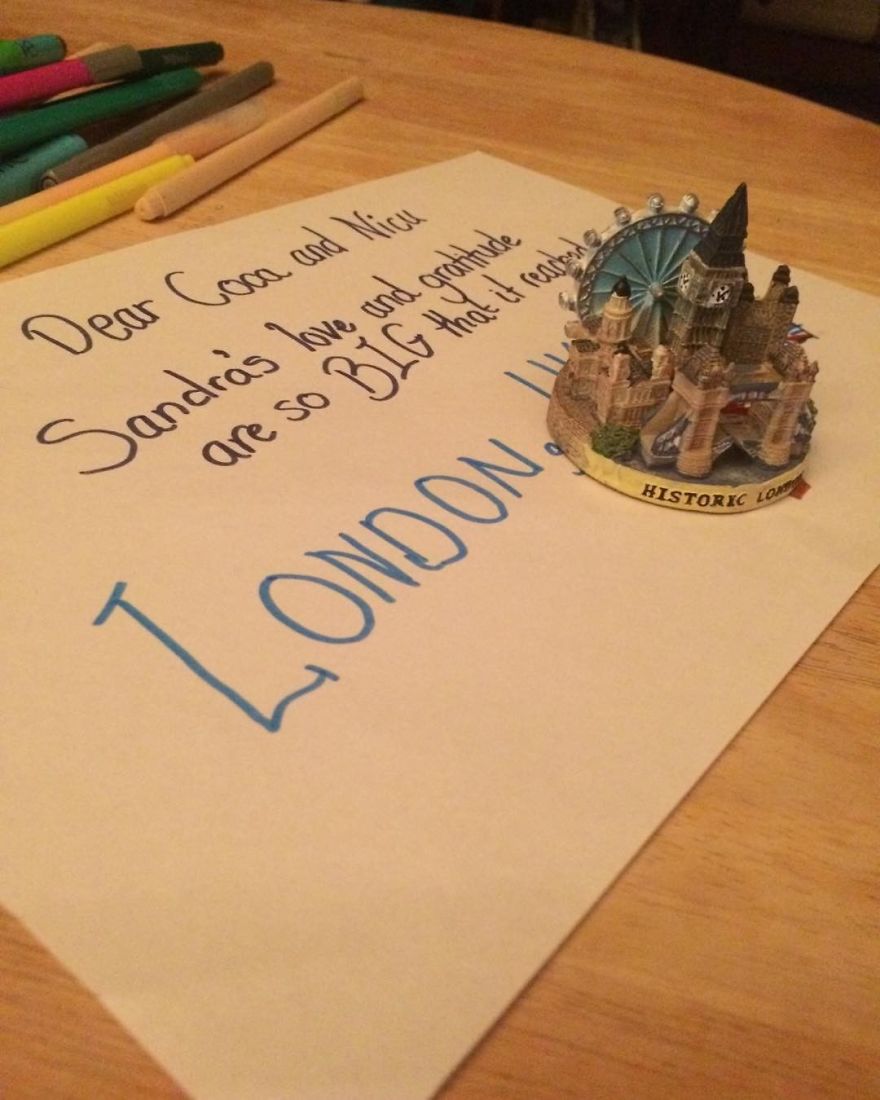 Dear Coca and Nicu
Sandra's love and gratitude
are so BIG that it reached
LONDON.
HISTORIC LONDON